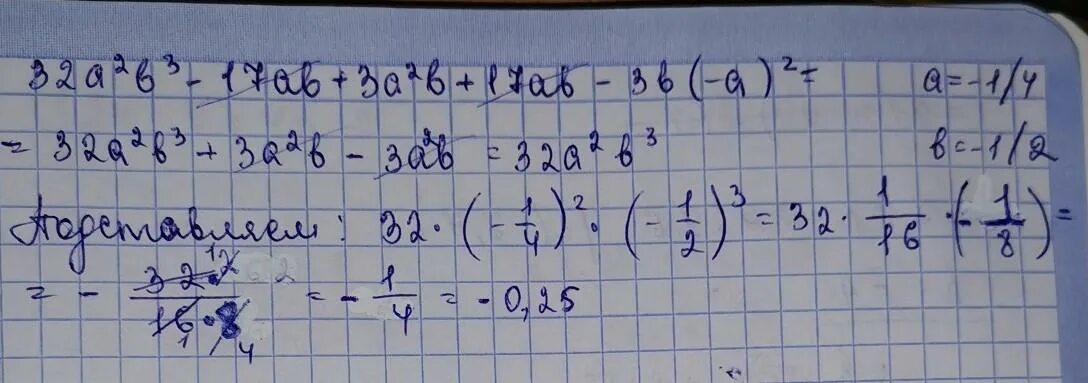 32a²b³ - 17ab + 3a²b + 17ab - 3b(-a)² = a = -1/4
= 32a²b³ + 3a²b - 3a²b = 32a²b³ b = -1/2
Подставляем: 32·(-1/4)²·(-1/2)³ = 32·1/16·(-1/8) =
= - 32/16·8 = -1/4 = -0,25